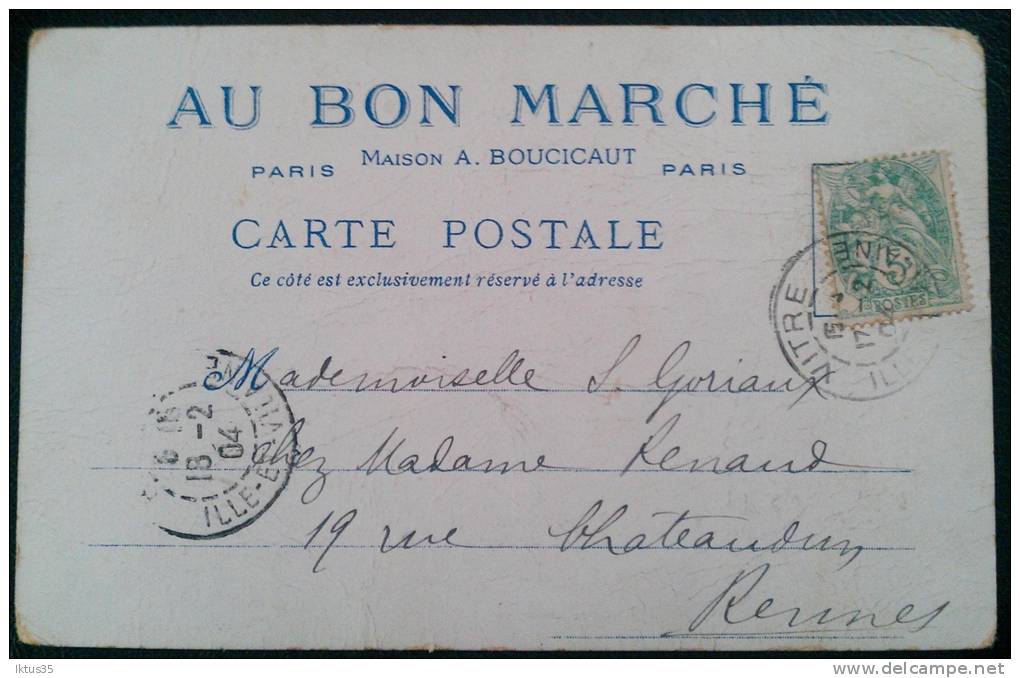 AU BON MARCHÉ
PARIS MAISON A. BOUCICAUT PARIS
CARTE POSTALE
Ce côté est exclusivement réservé à l'adresse
5c
POSTES
VITRE
15
17 2
ILLE
Mademoiselle S. Goriaux
chez Madame Renaud
19 rue Chateaudun
Rennes
18 -2
04
ILLE-ET-VILAINE
Iktus35
delcampe.net